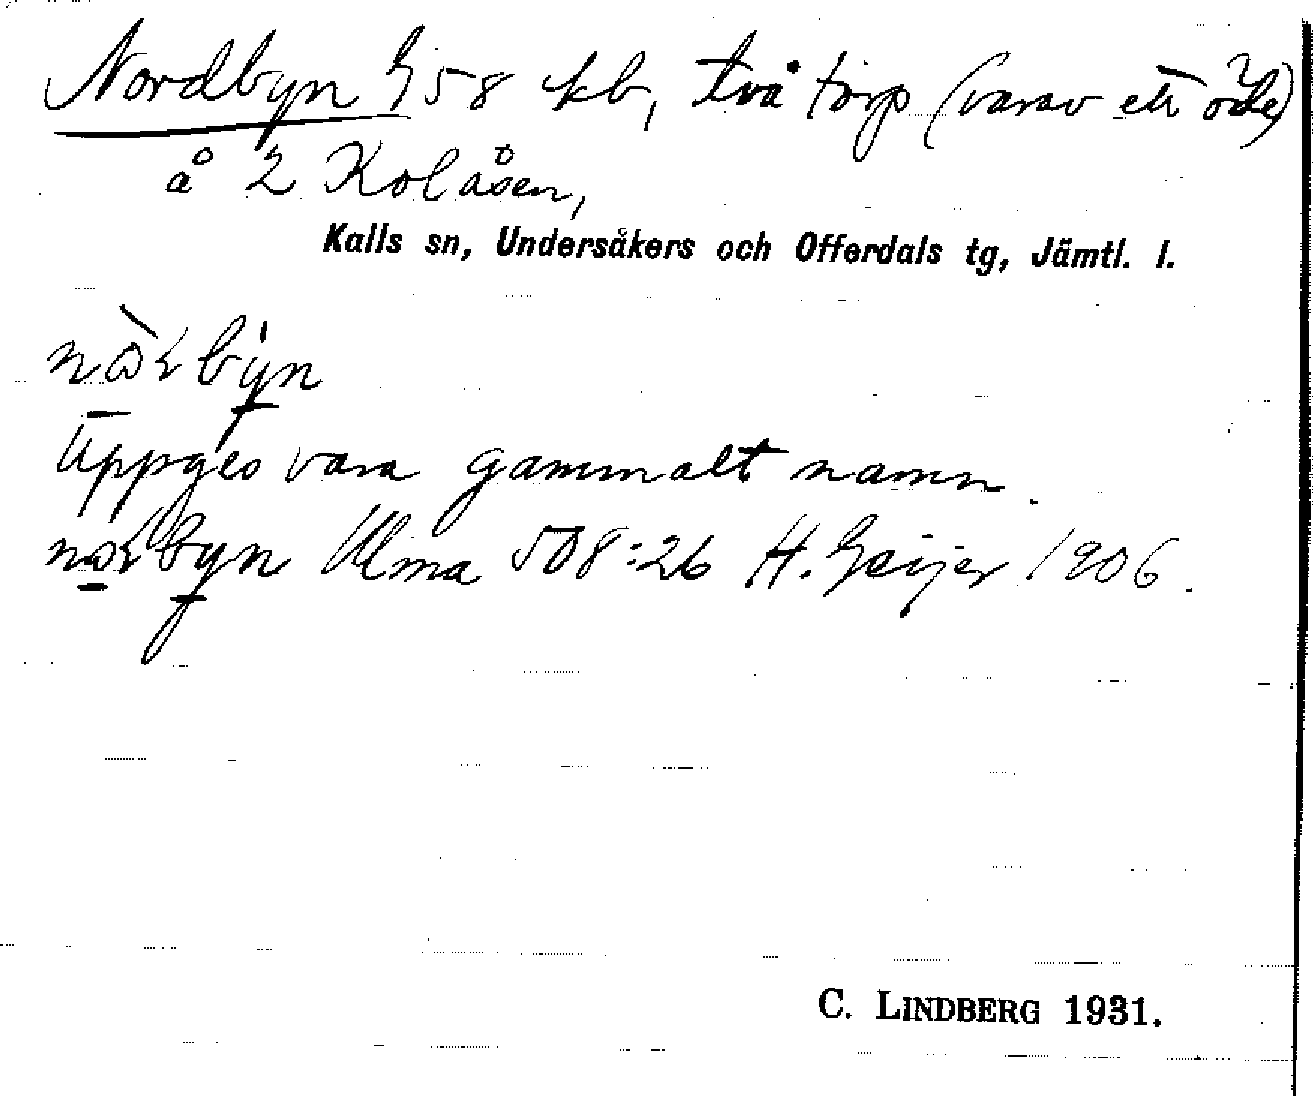 Nordbyn G58 kb, två torp (varav ett öde)
å 2 Kolåsen,
Kalls sn, Undersåkers och Offerdals tg, Jämtl. l.
Uppges vara gammalt namn.
Ulma 508:26 H. Geijer 1906.
C. LINDBERG 1931.